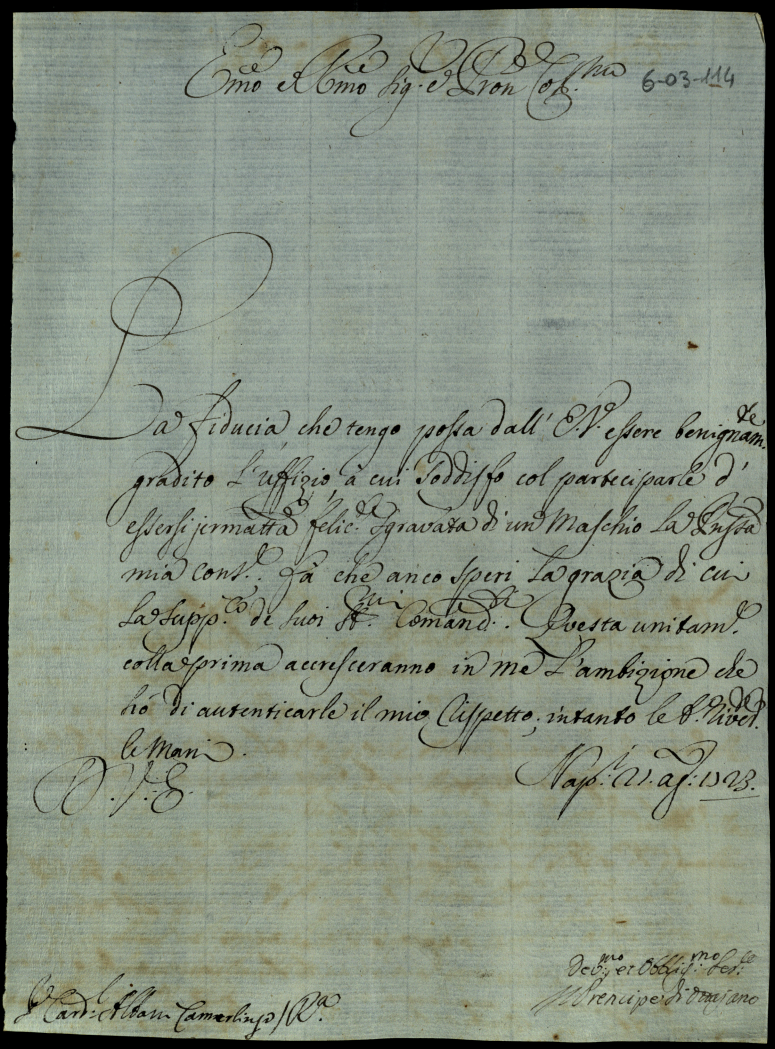 Em̃o et Rm̃o Sig.re Pron Col.mo
6-03-114
La fiducia che tengo possa dall' E.V. essere benignam.te
gradito L'uffizio, à cui soddisfo col parteciparle d'
essersi jermattã felic.te sgravata di un Maschio La
mia Cons.te fà che anco speri La grazia di cui
La supp.co de suoi st.mi Comand.i. Questa unitam.te
colla prima accresceranno in me L'ambizione che
hò di autenticarle il mio rispetto; intanto le
le Mani.
D.V.E. Nap.i 21. ag.to 1723.
Dev.mo et Obblig.mo Ser.re
Il Prencipe di
S.r Card.l Albani Camerlingo / R.a